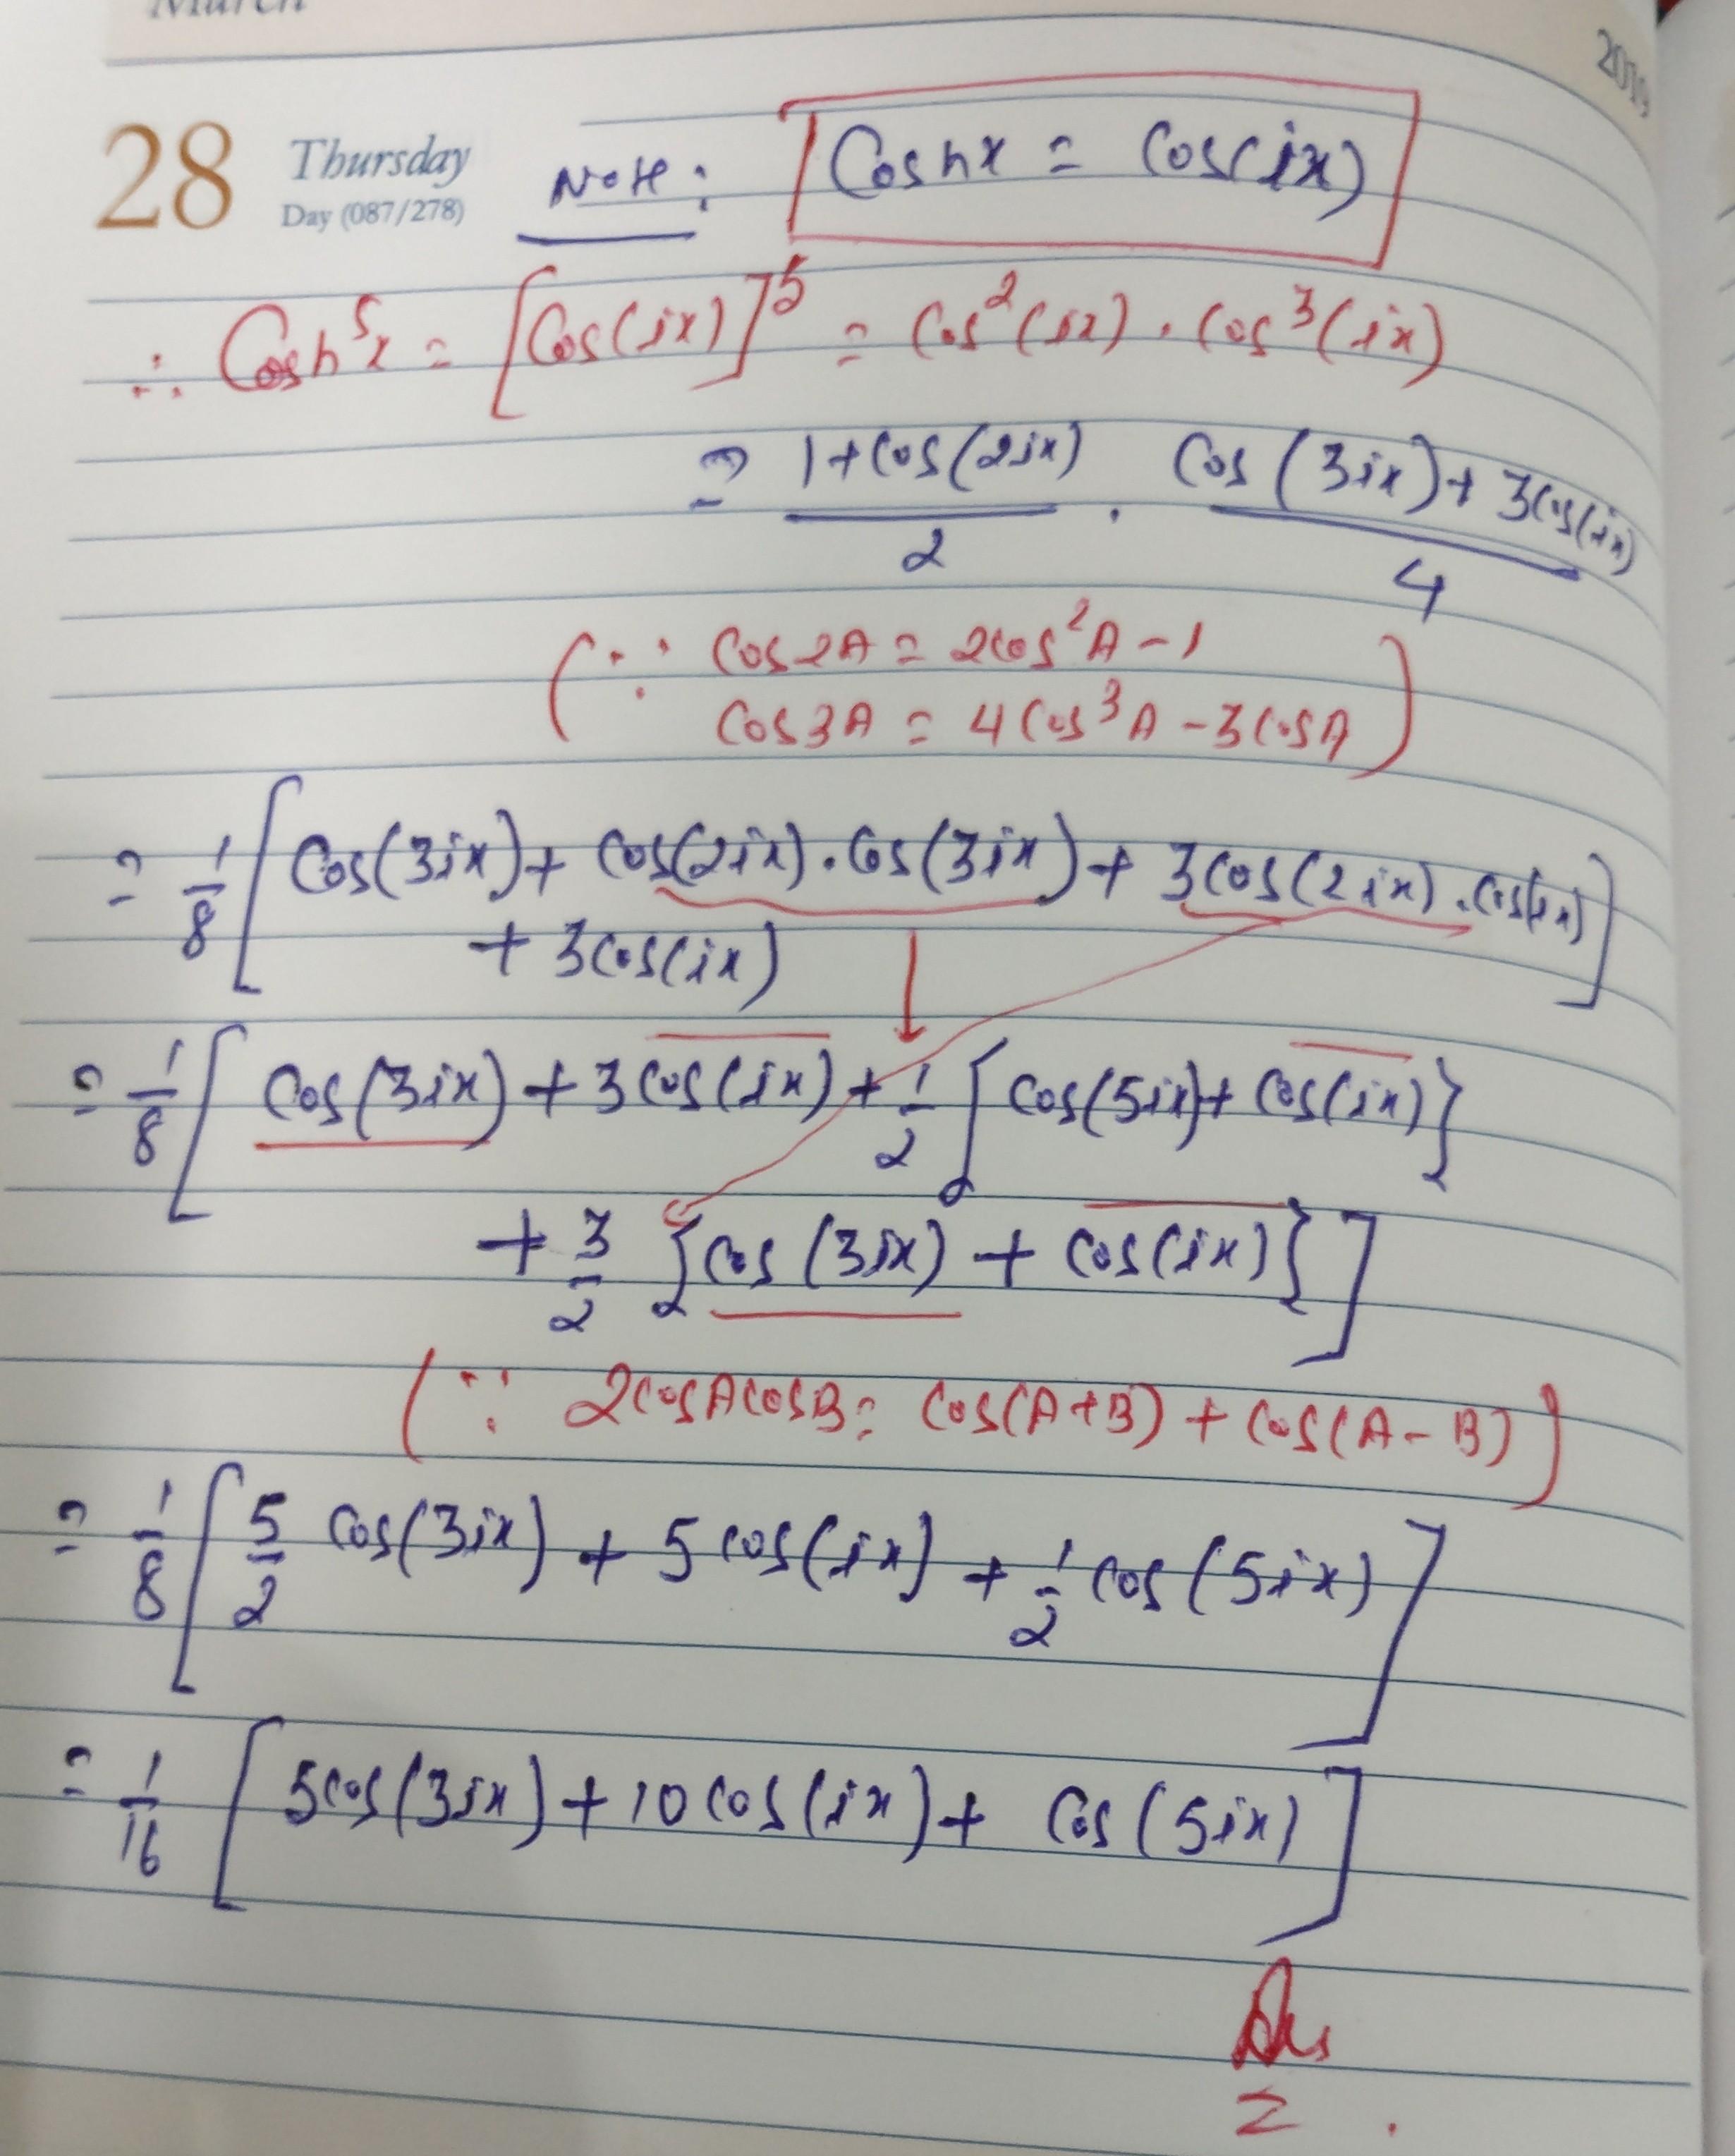 March
2019
28 Thursday Note: Cosh x = Cos(ix)
Day (087/278)
∴ Cosh⁵x = [Cos(ix)]⁵ = Cos²(ix) . Cos³(ix)
= 1+Cos(2ix)/2 . Cos(3ix)+3Cos(ix)/4
(∵ Cos2A = 2Cos²A - 1
Cos3A = 4Cos³A - 3CosA)
= 1/8 [Cos(3ix) + Cos(2ix).Cos(3ix) + 3Cos(2ix).Cos(ix)
+ 3Cos(ix)]
= 1/8 [Cos(3ix) + 3Cos(ix) + 1/2 {Cos(5ix) + Cos(ix)}
+ 3/2 {Cos(3ix) + Cos(ix)}]
(∵ 2CosACosB = Cos(A+B) + Cos(A-B))
= 1/8 [5/2 Cos(3ix) + 5Cos(ix) + 1/2 Cos(5ix)]
= 1/16 [5Cos(3ix) + 10Cos(ix) + Cos(5ix)]
Ans